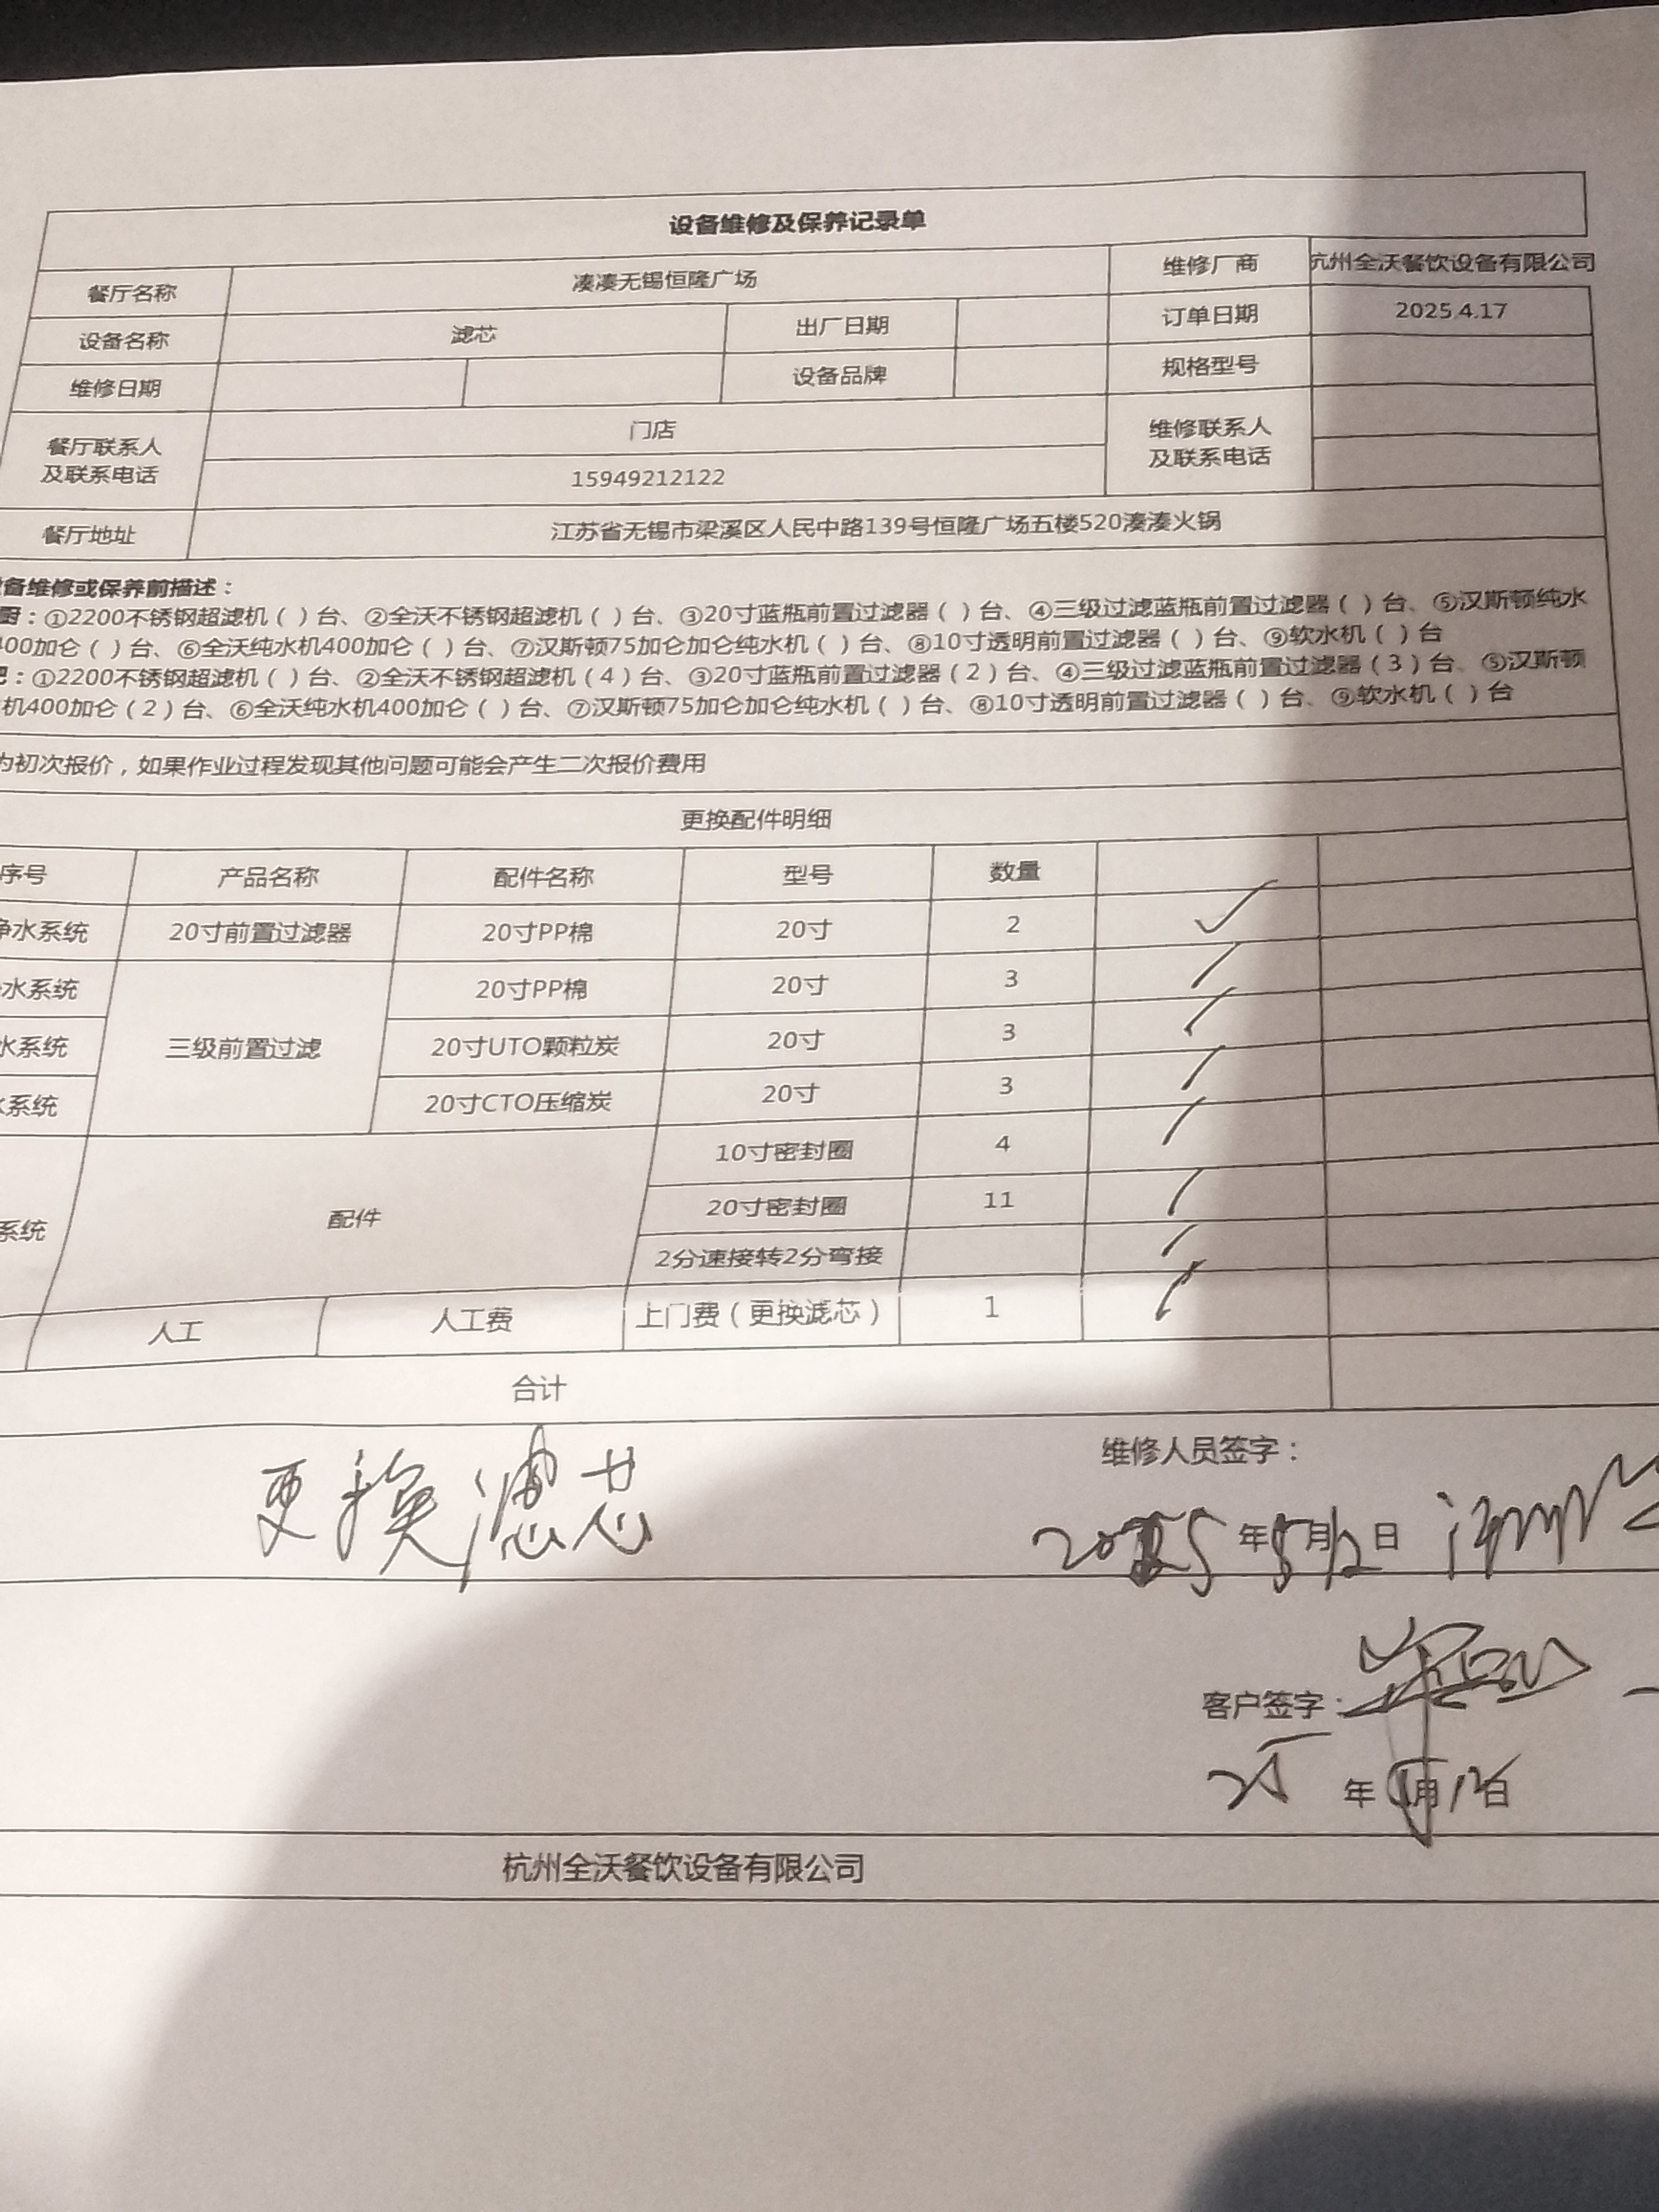 设备维修及保养记录单
餐厅名称 凑凑无锡恒隆广场 维修厂商 杭州全沃餐饮设备有限公司
设备名称 滤芯 出厂日期 订单日期 2025.4.17
维修日期 设备品牌 规格型号
餐厅联系人及联系电话 门店 维修联系人及联系电话
15949212122
餐厅地址 江苏省无锡市梁溪区人民中路139号恒隆广场五楼520凑凑火锅
备维修或保养前描述：
厨：①2200不锈钢超滤机（ ）台、②全沃不锈钢超滤机（ ）台、③20寸蓝瓶前置过滤器（ ）台、④三级过滤蓝瓶前置过滤器（ ）台、⑤汉斯顿纯水
400加仑（ ）台、⑥全沃纯水机400加仑（ ）台、⑦汉斯顿75加仑加仑纯水机（ ）台、⑧10寸透明前置过滤器（ ）台、⑨软水机（ ）台
吧：①2200不锈钢超滤机（ ）台、②全沃不锈钢超滤机（4）台、③20寸蓝瓶前置过滤器（2）台、④三级过滤蓝瓶前置过滤器（3）台、⑤汉斯顿
机400加仑（2）台、⑥全沃纯水机400加仑（ ）台、⑦汉斯顿75加仑加仑纯水机（ ）台、⑧10寸透明前置过滤器（ ）台、⑨软水机（ ）台
为初次报价，如果作业过程发现其他问题可能会产生二次报价费用
更换配件明细
序号 产品名称 配件名称 型号 数量
净水系统 20寸前置过滤器 20寸PP棉 20寸 2 ✓
水系统 三级前置过滤 20寸PP棉 20寸 3
水系统 20寸UTO颗粒炭 20寸 3
系统 20寸CTO压缩炭 20寸 3
系统 配件 10寸密封圈 4
20寸密封圈 11
2分速接转2分弯接
人工 人工费 上门费（更换滤芯） 1
合计
更换滤芯 维修人员签字：
2025年5月12日
客户签字：
25年5月12日
杭州全沃餐饮设备有限公司